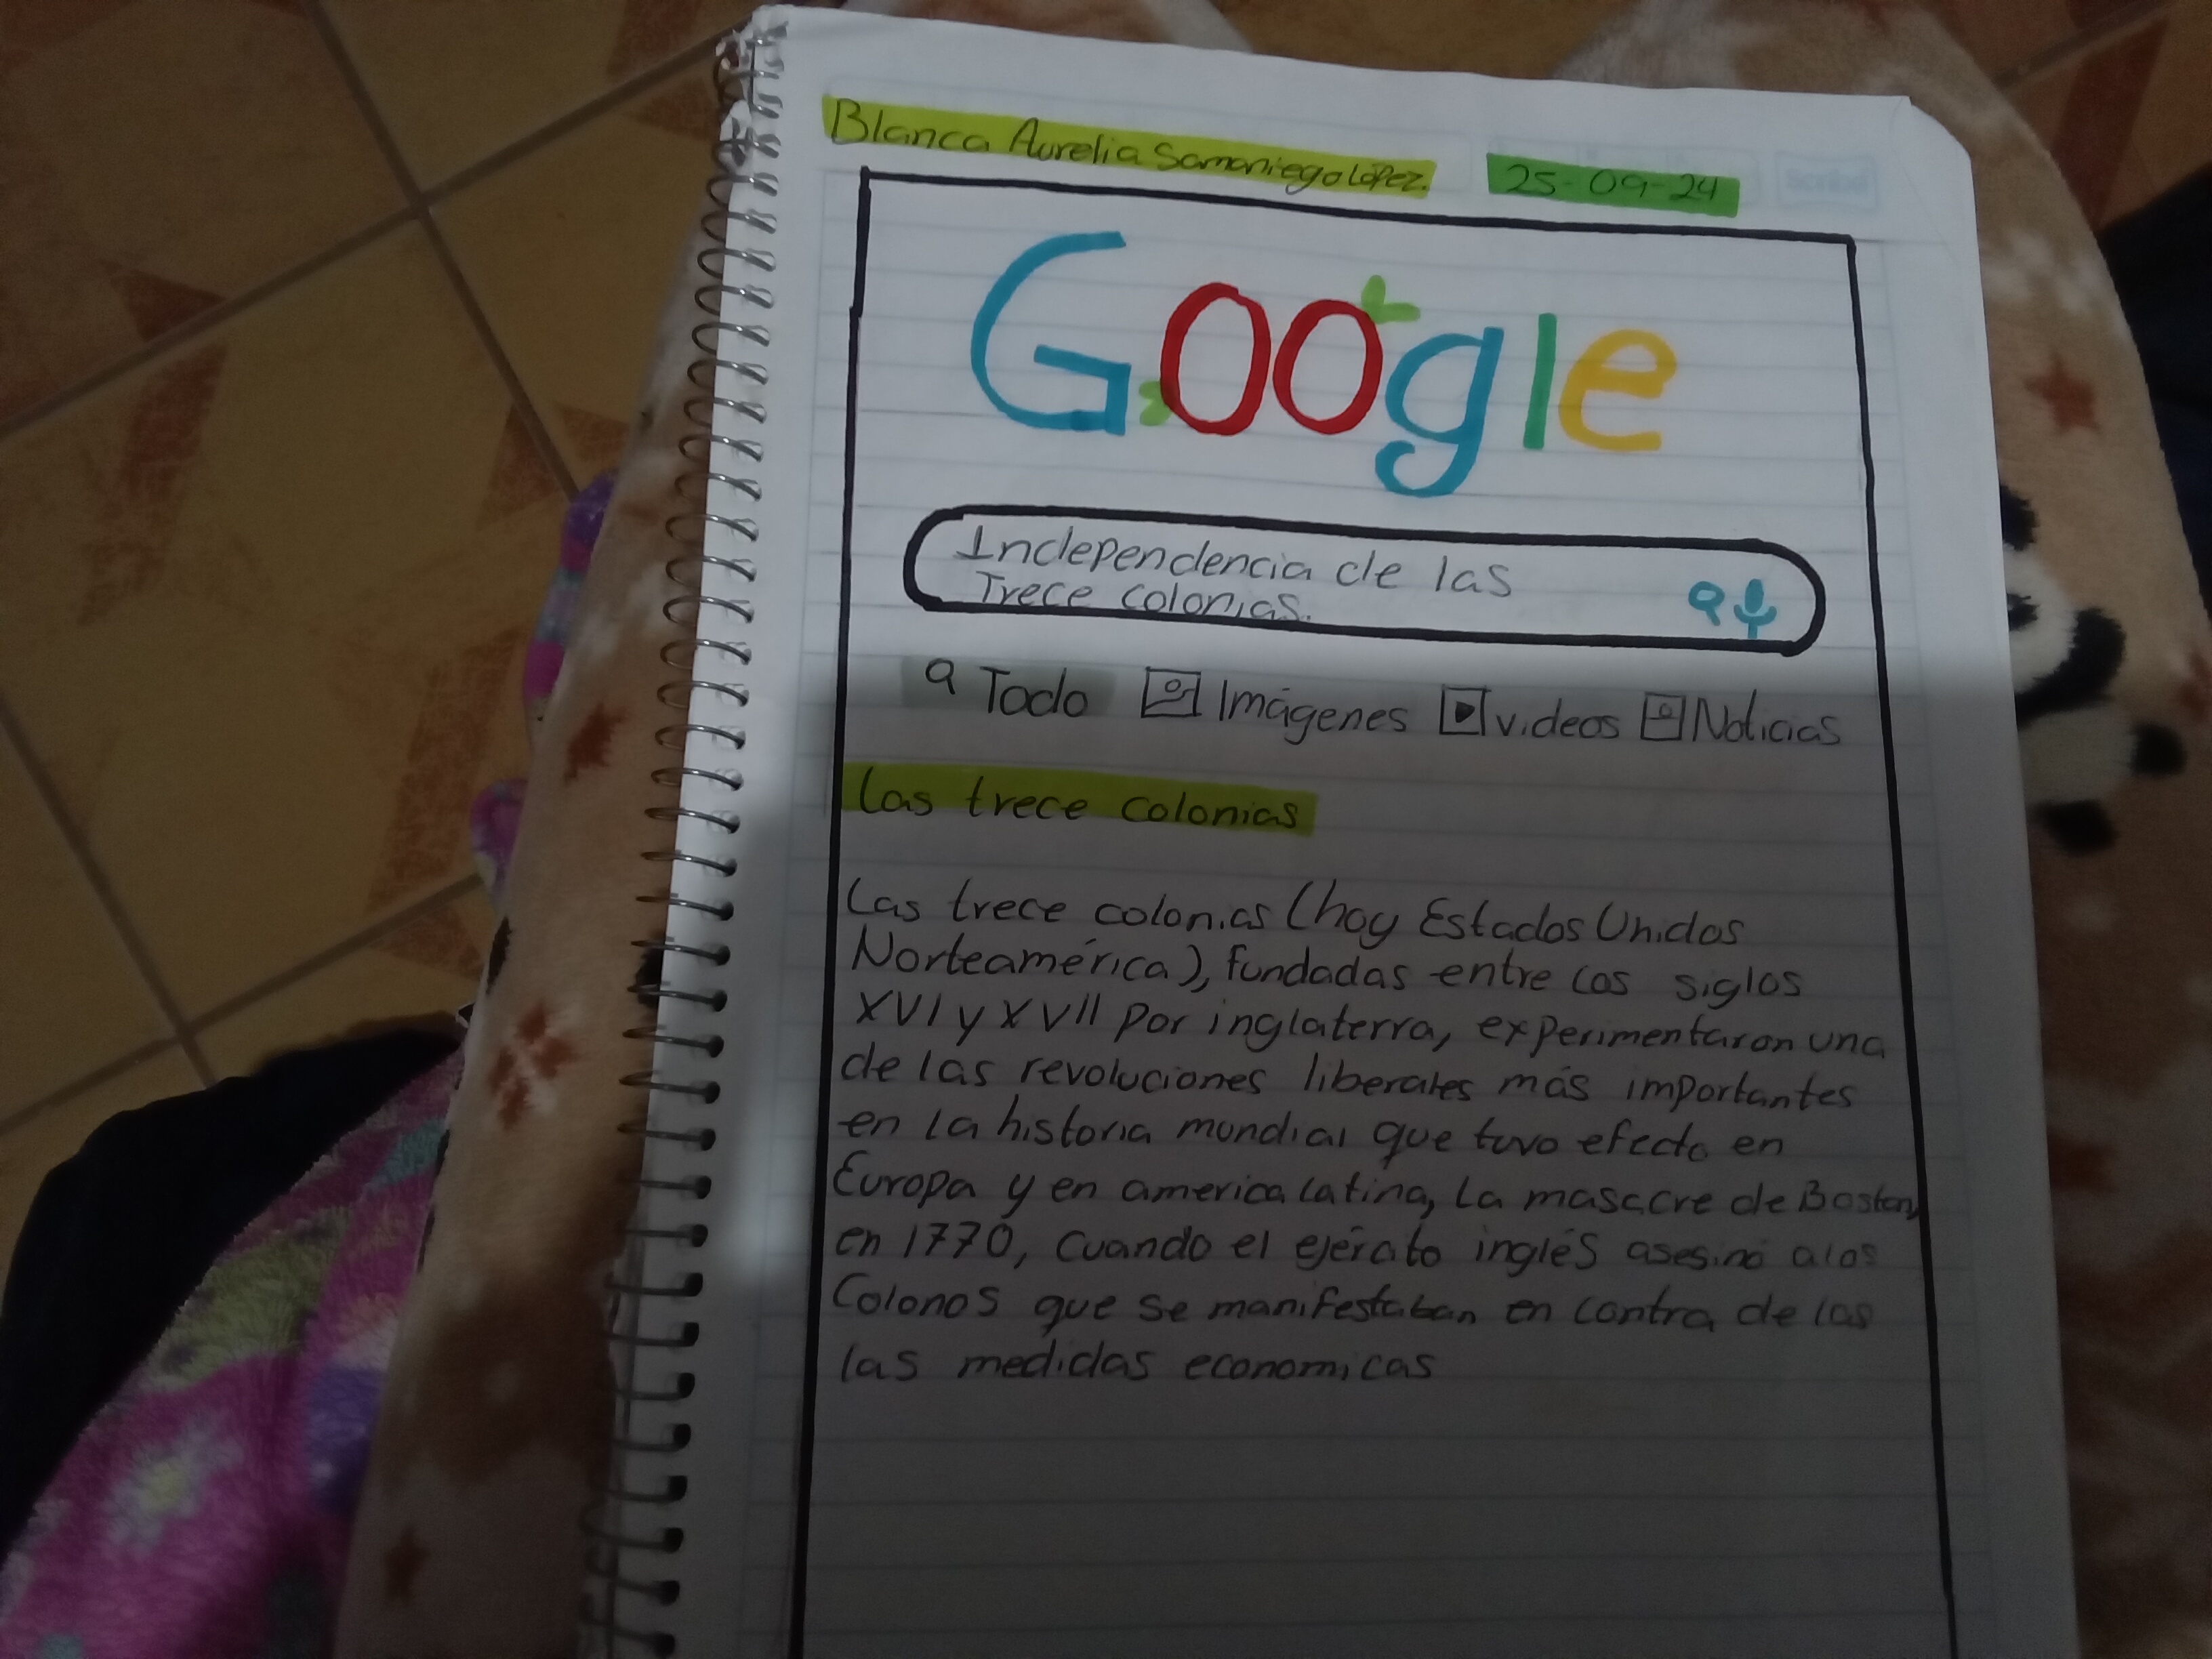 Blanca Aurelia Samaniego López. 25-09-24
Google
Independencia de las
Trece colonias.
Todo Imágenes videos Noticias
Las trece colonias
Las trece colonias (hoy Estados Unidos
Norteamérica), fundadas entre los siglos
XVI y XVII por inglaterra, experimentaron una
de las revoluciones liberales más importantes
en la historia mundial que tuvo efecto en
Europa y en america latina, La masacre de Boston,
en 1770, cuando el ejército inglés asesinó a los
Colonos que se manifestaban en contra de las
las medidas economicas